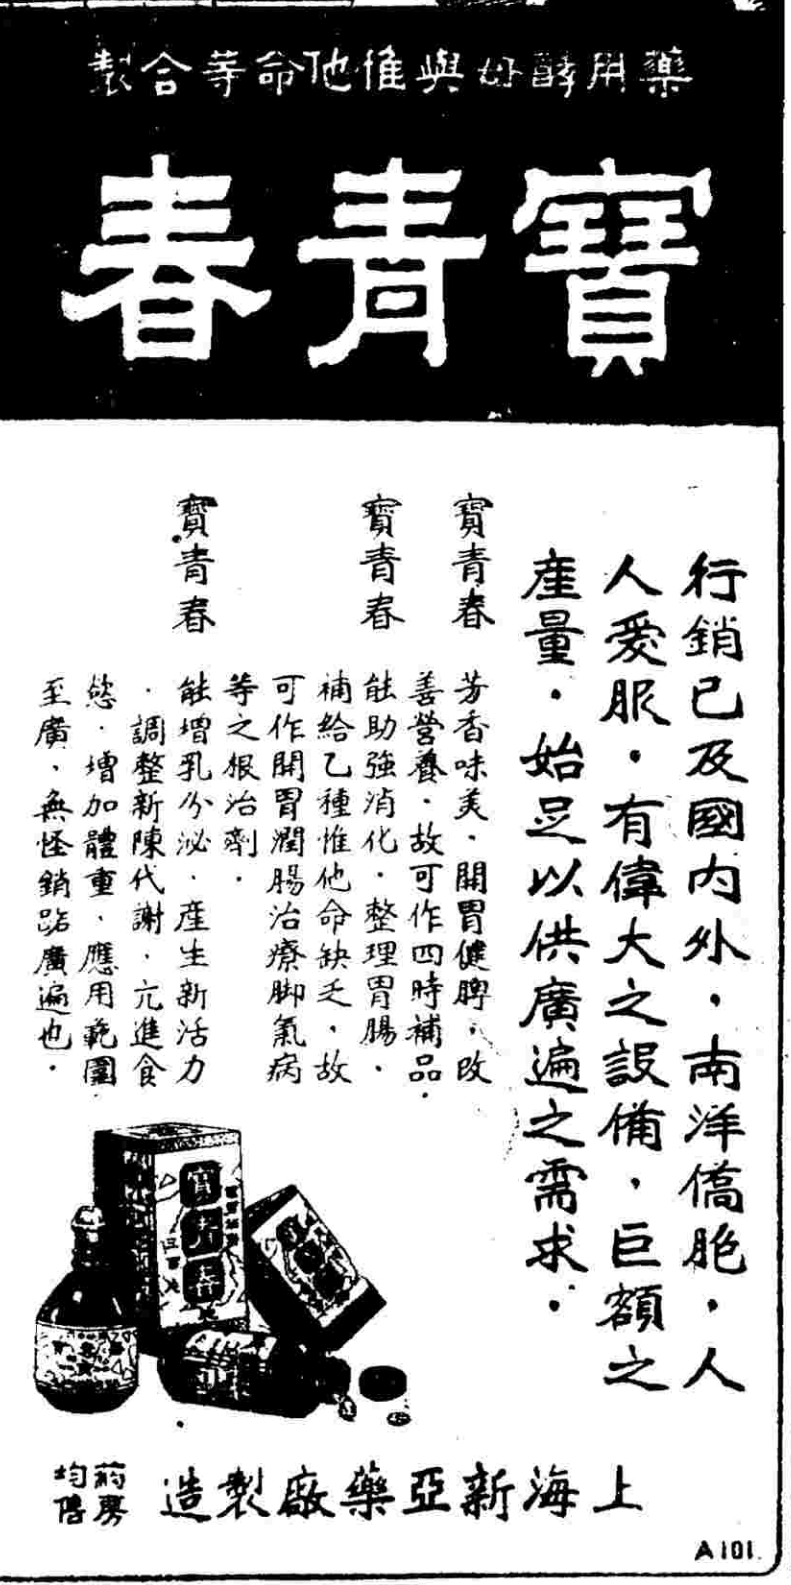 藥用酵母與維他命等合製
寶青春
行銷已及國内外，南洋僑胞，人
人愛服。有偉大之設備，巨額之
產量。始足以供廣遍之需求。
寶青春
芳香味美，開胃健脾，改
善營養，故可作四時補品。
寶青春
能助強消化，整理胃腸，
補給乙種惟他命缺乏，故
可作開胃潤腸治療脚氣病
等之根治劑。
寶青春
能增乳分泌，產生新活力
，調整新陳代謝，亢進食
慾，增加體重，應用範圍
至廣，無怪銷路廣遍也。
寶青春
上海新亞藥廠製造
葯房
均售
A101